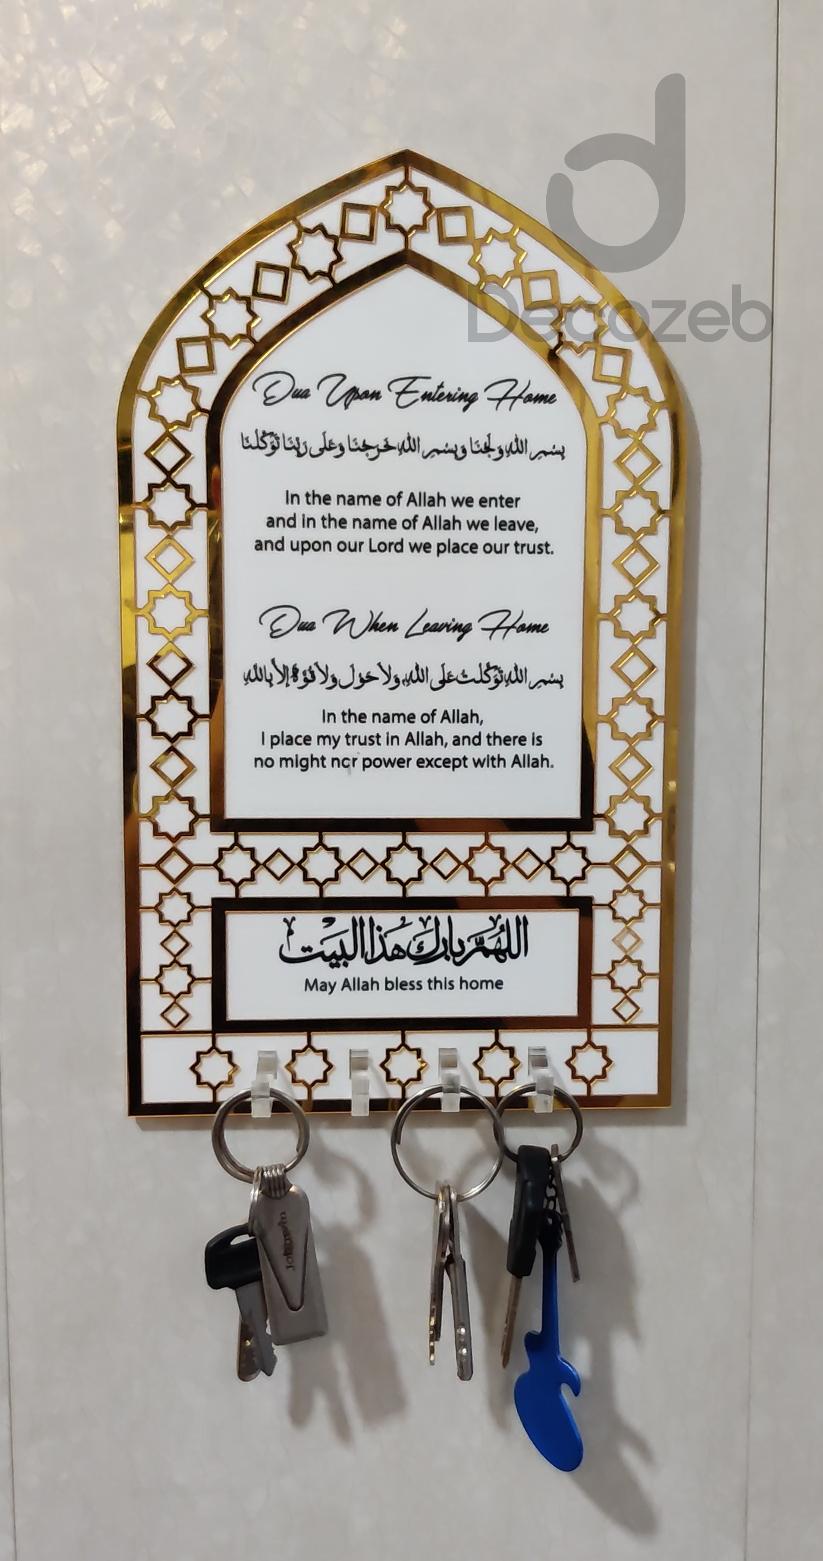 Decozeb
Dua Upon Entering Home
بِسْمِ اللهِ وَلَجْنَا وَبِسْمِ اللهِ خَرَجْنَا وَعَلَى رَبِّنَا تَوَكَّلْنَا
In the name of Allah we enter
and in the name of Allah we leave,
and upon our Lord we place our trust.
Dua When Leaving Home
بِسْمِ اللهِ تَوَكَّلْتُ عَلَى اللهِ وَلَا حَوْلَ وَلَا قُوَّةَ إِلَّا بِاللهِ
In the name of Allah,
I place my trust in Allah, and there is
no might nor power except with Allah.
اللَّهُمَّ بَارِكْ هَذَا الْبَيْت
May Allah bless this home